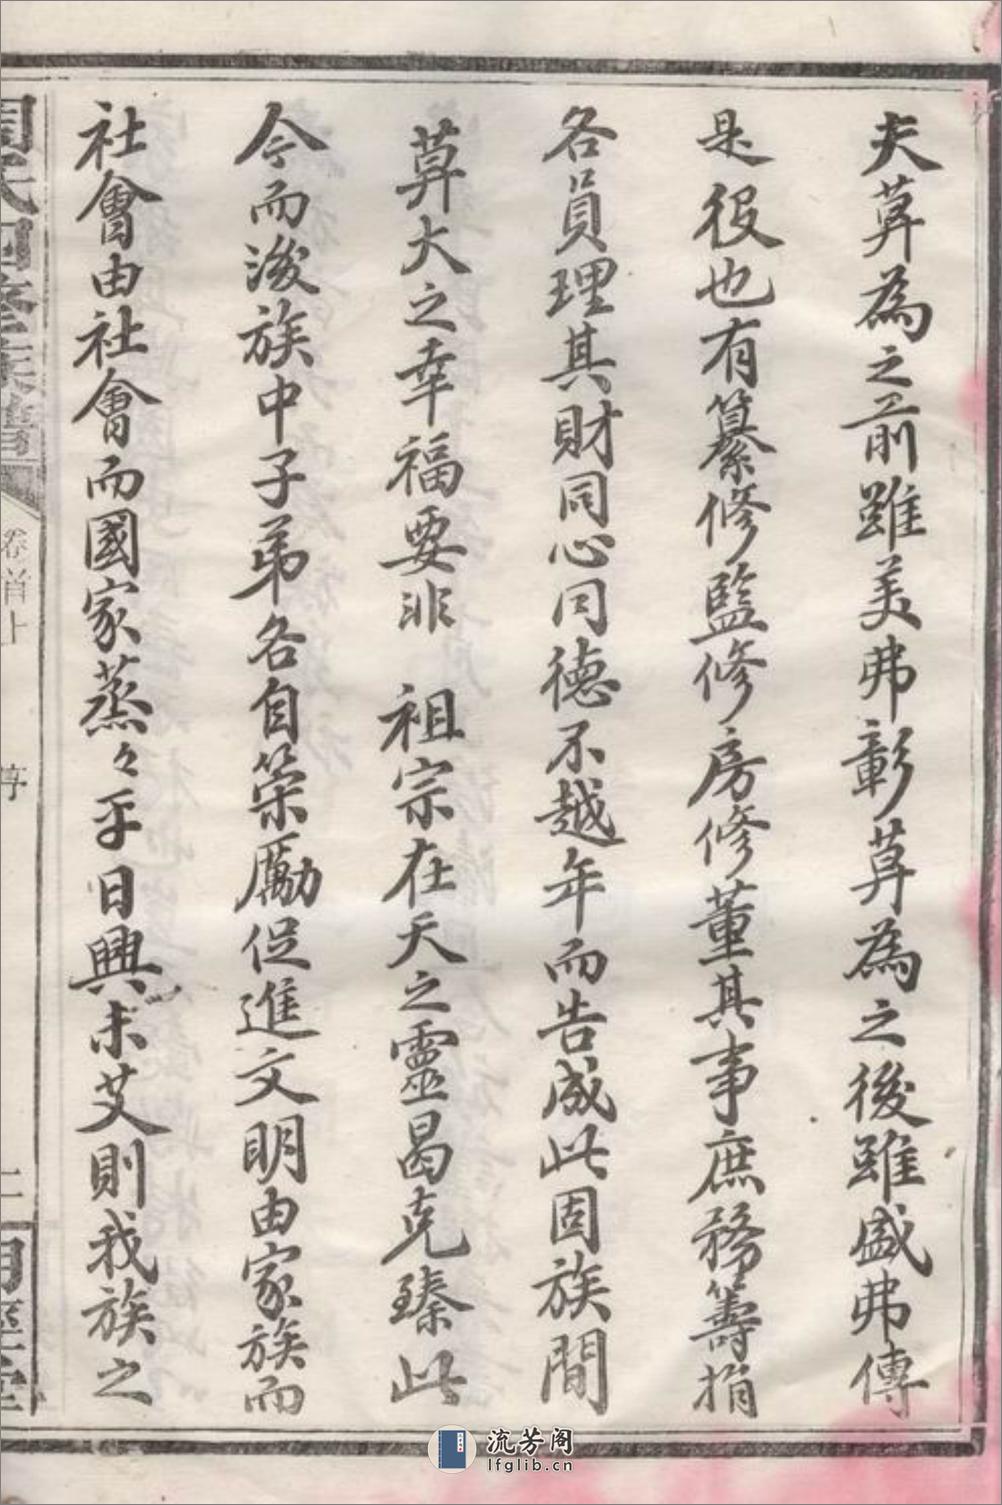 夫莫為之前雖美弗彰莫為之後雖盛弗傳
是役也有纂修監修房修董其事庶務籌捐
各員理其財同心同德不越年而告成此固族間
莫大之幸福要非 祖宗在天之靈曷克臻此
今而後族中子弟各自策勵促進文明由家族而
社會由社會而國家蒸々乎日興未艾則我族之
周氏四修族譜
卷首上
序
二
流芳阁
lfglib.cn